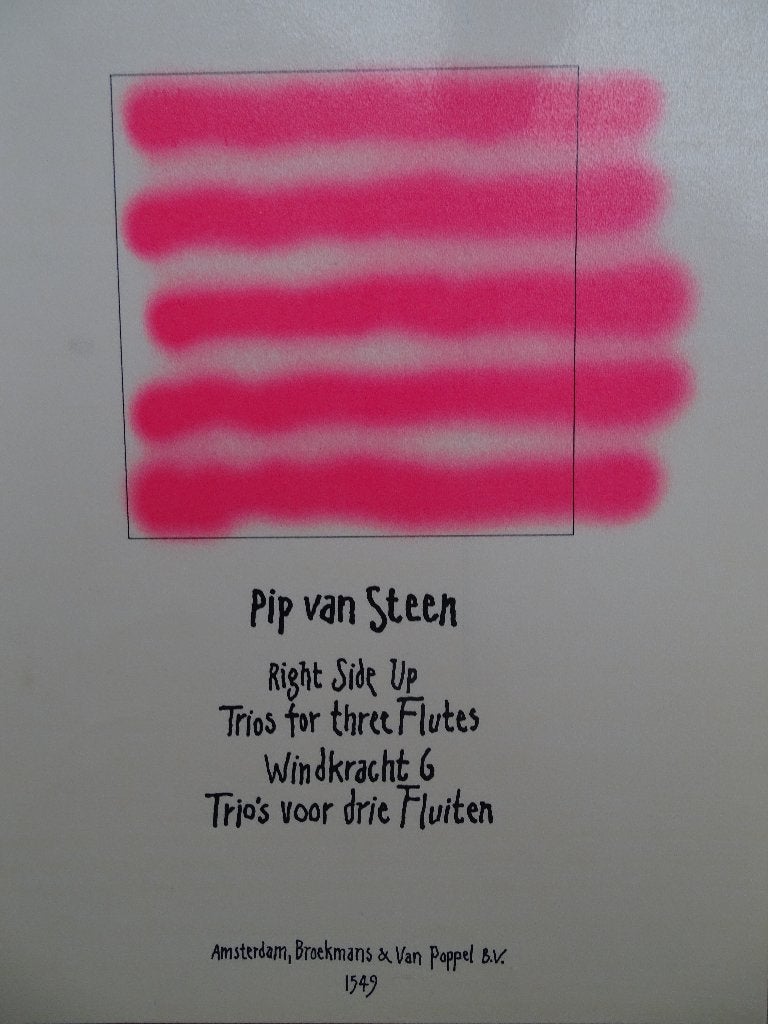 Pip van Steen
Right Side Up
Trios for three Flutes
Windkracht 6
Trio's voor drie Fluiten
Amsterdam, Broekmans & Van Poppel B.V.
1549